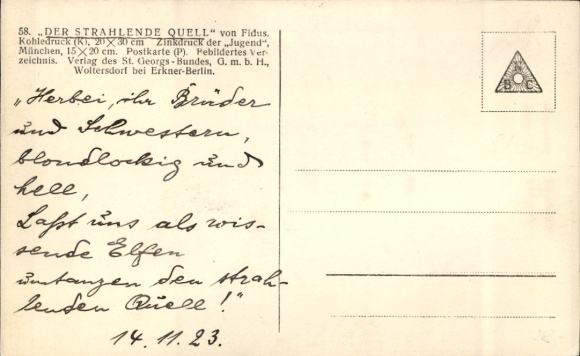 58. „DER STRAHLENDE QUELL“ von Fidus.
Kohledruck (K), 20×30 cm Zinkdruck der „Jugend“,
München, 15×20 cm. Postkarte (P). Bebildertes Ver-
zeichnis. Verlag des St. Georgs-Bundes, G. m. b. H.,
Woltersdorf bei Erkner-Berlin.
„Herbei, ihr Brüder
und Schwestern,
blondlockig und
hell,
Laßt uns als wis-
sende Elfen
umtanzen den strah-
lenden Quell!“
14.11.23.
B C